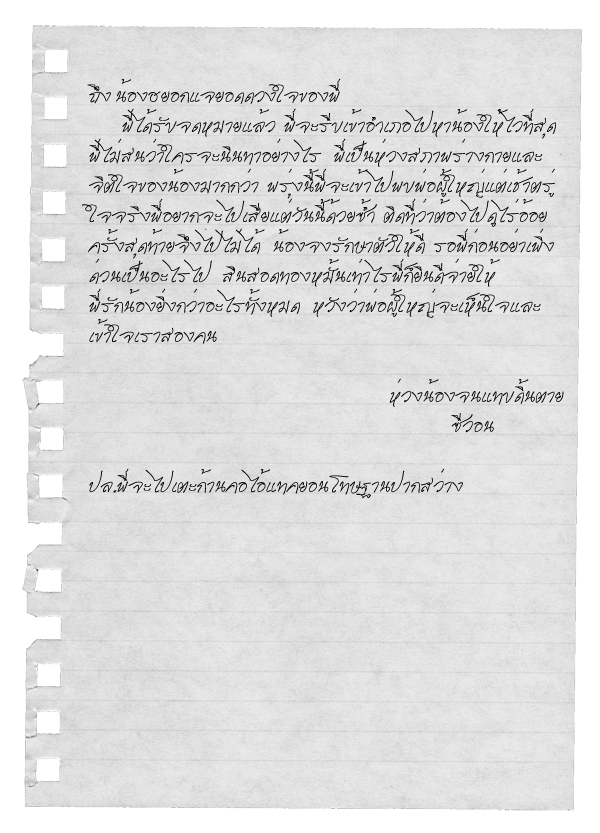 ถึง น้องชยอกแจยอดดวงใจของพี่
พี่ได้รับจดหมายแล้ว พี่จะรีบเข้าอำเภอไปหาน้องให้ไวที่สุด
พี่ไม่สนว่าใครจะนินทาอย่างไร พี่เป็นห่วงสภาพร่างกายและ
จิตใจของน้องมากกว่า พรุ่งนี้พี่จะเข้าไปพบพ่อผู้ใหญ่แต่เช้าตรู่
ใจจริงพี่อยากจะไปเสียแต่วันนี้ด้วยซ้ำ ติดที่ว่าต้องไปดูไร่อ้อย
ครั้งสุดท้ายจึงไปไม่ได้ น้องจงรักษาตัวให้ดี รอพี่ก่อนอย่าเพิ่ง
ด่วนเป็นอะไรไป สินสอดทองหมั้นเท่าไรพี่ก็ยินดีจ่ายให้
พี่รักน้องยิ่งกว่าอะไรทั้งหมด หวังว่าพ่อผู้ใหญ่จะเห็นใจและ
เข้าใจเราสองคน
ห่วงน้องจนแทบดิ้นตาย
ชีวอน
ปล.พี่จะไปเตะก้านคอไอ้แทคยอนโทษฐานปากสว่าง